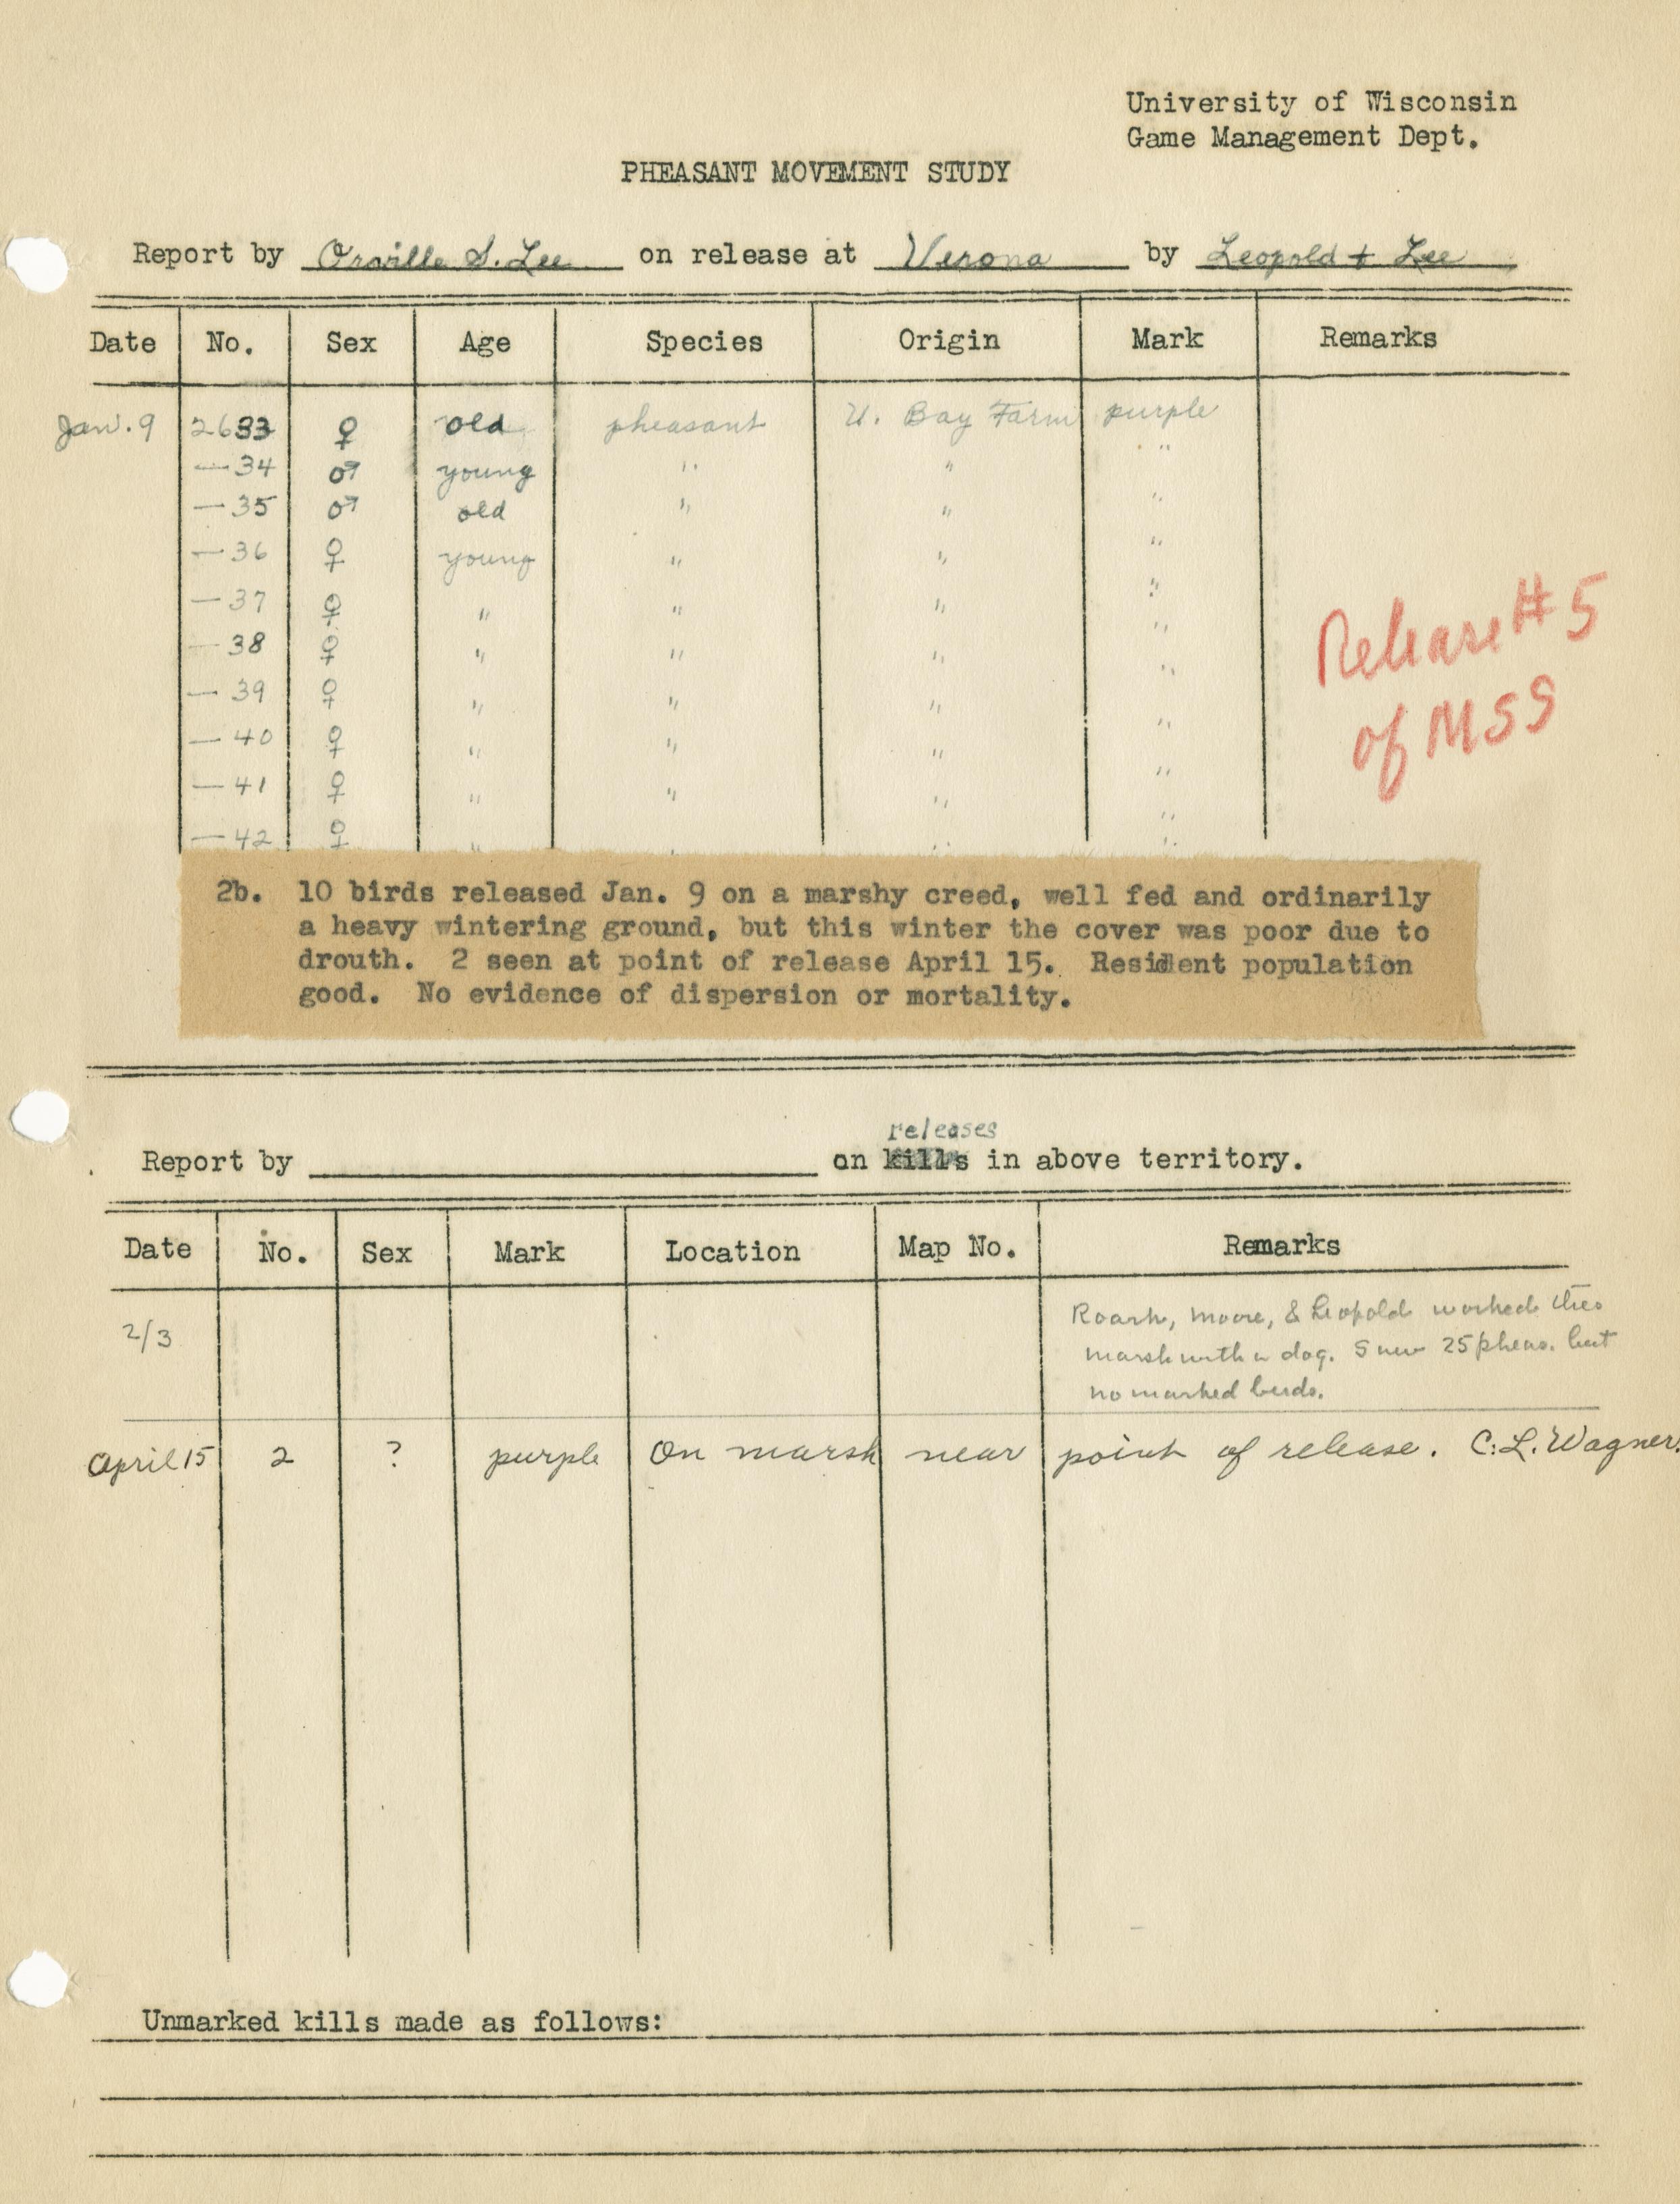 University of Wisconsin
Game Management Dept.
PHEASANT MOVEMENT STUDY
Report by Orville S. Lee on release at Verona by Leopold + Lee
Date No. Sex Age Species Origin Mark Remarks
Jan. 9 2633 ♀ old pheasant U. Bay Farm purple
—34 ♂ young " " "
—35 ♂ old " " "
—36 ♀ young " " "
—37 ♀ " " " "
—38 ♀ " " " "
—39 ♀ " " " "
—40 ♀ " " " "
—41 ♀ " " " "
—42 ♀ " " " "
Release # 5
of MSS
2b. 10 birds released Jan. 9 on a marshy creed, well fed and ordinarily
a heavy wintering ground, but this winter the cover was poor due to
drouth. 2 seen at point of release April 15. Resident population
good. No evidence of dispersion or mortality.
releases
Report by on kills in above territory.
Date No. Sex Mark Location Map No. Remarks
2/3 Roark, Moore, & Leopold worked this
marsh with a dog. Saw 25 pheas. but
no marked birds.
April 15 2 ? purple On marsh near point of release. C. L. Wagner.
Unmarked kills made as follows: